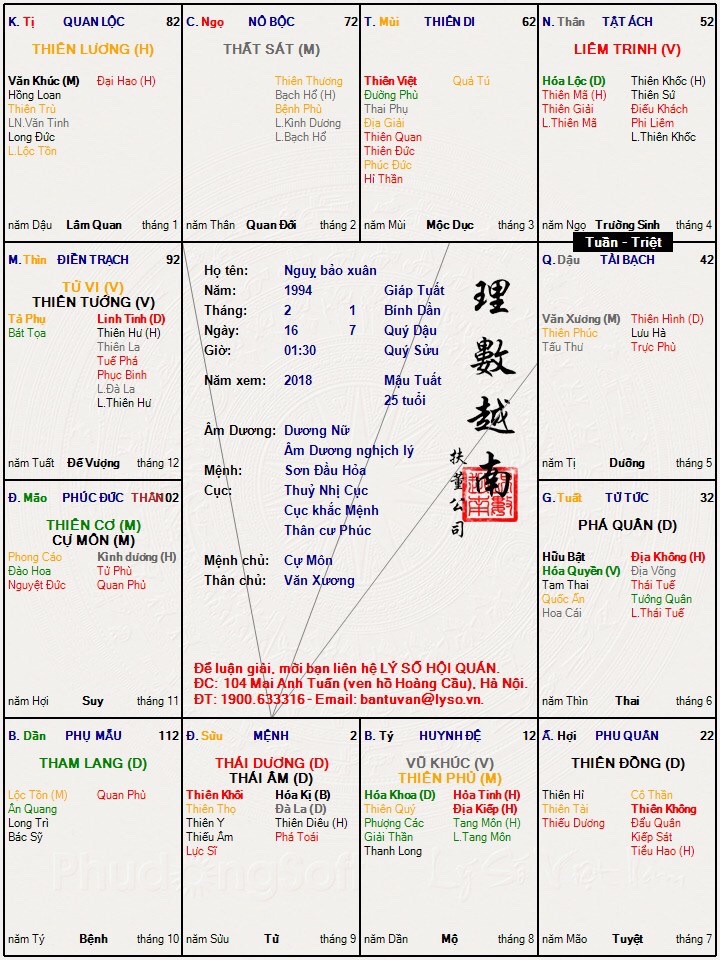 K. Tị QUAN LỘC 82
THIÊN LƯƠNG (H)
Văn Khúc (M) Đại Hao (H)
Hồng Loan
Thiên Trù
LN.Văn Tinh
Long Đức
L.Lộc Tồn
năm Dậu Lâm Quan tháng 1
C. Ngọ NÔ BỘC 72
THẤT SÁT (M)
Thiên Thương
Bạch Hổ (H)
Bệnh Phù
L.Kình Dương
L.Bạch Hổ
năm Thân Quan Đới tháng 2
T. Mùi THIÊN DI 62
Thiên Việt Quả Tú
Đường Phù
Thai Phụ
Địa Giải
Thiên Quan
Thiên Đức
Phúc Đức
Hỉ Thần
năm Mùi Mộc Dục tháng 3
N. Thân TẬT ÁCH 52
LIÊM TRINH (V)
Hóa Lộc (D) Thiên Khốc (H)
Thiên Mã (H) Thiên Sứ
Thiên Giải Điếu Khách
L.Thiên Mã Phi Liêm
L.Thiên Khốc
năm Ngọ Trường Sinh tháng 4
Tuần - Triệt
M. Thìn ĐIỀN TRẠCH 92
TỬ VI (V)
THIÊN TƯỚNG (V)
Tả Phụ Linh Tinh (D)
Bát Tọa Thiên Hư (H)
Thiên La
Tuế Phá
Phục Binh
L.Đà La
L.Thiên Hư
năm Tuất Đế Vượng tháng 12
Họ tên: Nguỵ bảo xuân
Năm: 1994 Giáp Tuất
Tháng: 2 1 Bính Dần
Ngày: 16 7 Quý Dậu
Giờ: 01:30 Quý Sửu
Năm xem: 2018 Mậu Tuất
25 tuổi
Âm Dương: Dương Nữ
Âm Dương nghịch lý
Mệnh: Sơn Đầu Hỏa
Cục: Thuỷ Nhị Cục
Cục khắc Mệnh
Thân cư Phúc
Mệnh chủ: Cự Môn
Thân chủ: Văn Xương
理數越南
扶董公司
Để luận giải, mời bạn liên hệ LÝ SỐ HỘI QUÁN.
ĐC: 104 Mai Anh Tuấn (ven hồ Hoàng Cầu), Hà Nội.
ĐT: 1900.633316 - Email: bantuvan@lyso.vn.
Q. Dậu TÀI BẠCH 42
Văn Xương (M) Thiên Hình (D)
Thiên Phúc Lưu Hà
Tấu Thư Trực Phù
năm Tị Dưỡng tháng 5
Đ. Mão PHÚC ĐỨC THÂN 102
THIÊN CƠ (M)
CỰ MÔN (M)
Phong Cáo Kình dương (H)
Đào Hoa Tử Phù
Nguyệt Đức Quan Phủ
năm Hợi Suy tháng 11
G. Tuất TỬ TỨC 32
PHÁ QUÂN (D)
Hữu Bật Địa Không (H)
Hóa Quyền (V) Địa Võng
Tam Thai Thái Tuế
Quốc Ấn Tướng Quân
Hoa Cái L.Thái Tuế
năm Thìn Thai tháng 6
B. Dần PHỤ MẪU 112
THAM LANG (D)
Lộc Tồn (M) Quan Phù
Ân Quang
Long Trì
Bác Sỹ
năm Tý Bệnh tháng 10
Đ. Sửu MỆNH 2
THÁI DƯƠNG (D)
THÁI ÂM (D)
Thiên Khôi Hóa Kị (B)
Thiên Thọ Đà La (D)
Thiên Y Thiên Diêu (H)
Thiếu Âm Phá Toái
Lực Sĩ
năm Sửu Tử tháng 9
B. Tý HUYNH ĐỆ 12
VŨ KHÚC (V)
THIÊN PHỦ (M)
Hóa Khoa (D) Hỏa Tinh (H)
Thiên Quý Địa Kiếp (H)
Phượng Các Tang Môn (H)
Giải Thần L.Tang Môn
Thanh Long
năm Dần Mộ tháng 8
Ấ. Hợi PHU QUÂN 22
THIÊN ĐỒNG (D)
Thiên Hỉ Cô Thần
Thiên Tài Thiên Không
Thiếu Dương Đẩu Quân
Kiếp Sát
Tiểu Hao (H)
năm Mão Tuyệt tháng 7